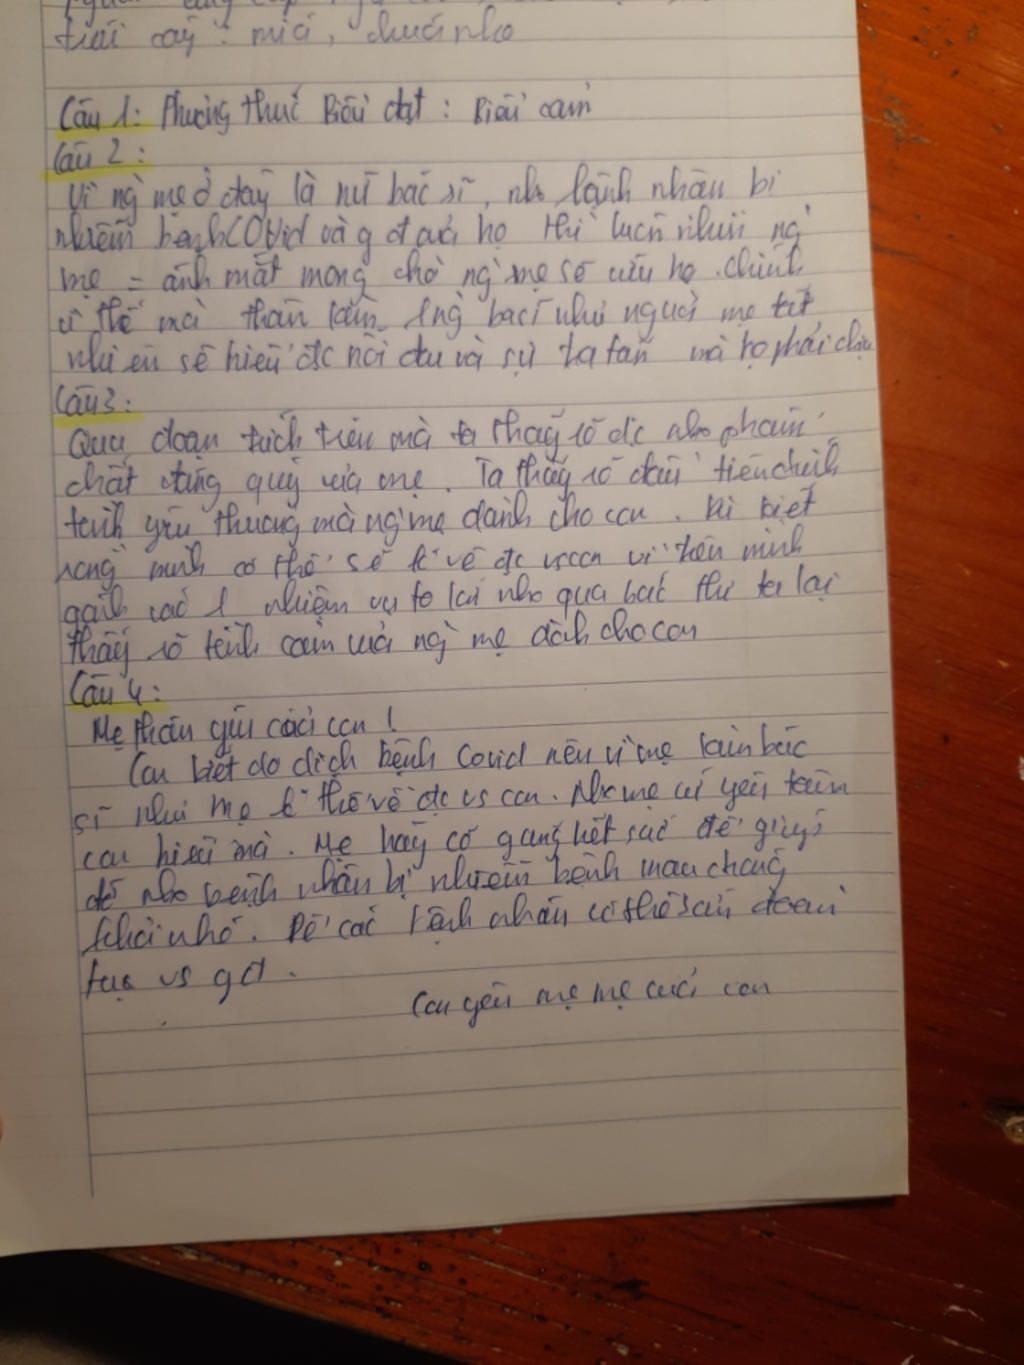 trái cây : mía, chuối nho
Câu 1: Phương thức Biểu đạt : Biểu cảm
Câu 2 :
Vì ng` mẹ ở đây là nữ bác sĩ, nh~ bệnh nhân bị
nhiễm bệnh COVid và g đ của họ thì luôn nhìn ng`
mẹ = ánh mắt mong chờ ng` mẹ sẽ cứu họ. chính
vì thế mà thân làm 1 ng` bác sĩ như người mẹ tất
nhiên sẽ hiểu đc nỗi đau và sự mà họ phải chịu
Câu 3:
Qua đoạn trích trên mà ta thấy rõ đc nh~ phẩm
chất đáng quý của mẹ. Ta thấy rõ đầu tiên chính
tình yêu thương mà ng` mẹ dành cho con. Khi biết
rằng mình có thể sẽ k về đc vs con vì trên mình
gánh vác 1 nhiệm vụ to lớn qua bức thư ta lại
thấy rõ tình cảm của ng` mẹ dành cho con
Câu 4:
Mẹ thân gửi của con !
Con biết do dịch bệnh Covid nên vì mẹ làm bác
sĩ như mẹ k thể về đc vs con. Nh mẹ cứ yên tâm
con hiểu mà. Mẹ hãy cố gắng hết sức để giúp
đỡ nh~ bệnh nhân bị nhiễm bệnh mau chóng
khỏi nhé. Để các bệnh nhân có thể sớm đoàn
tụ vs gđ.
Con yêu mẹ mẹ của con